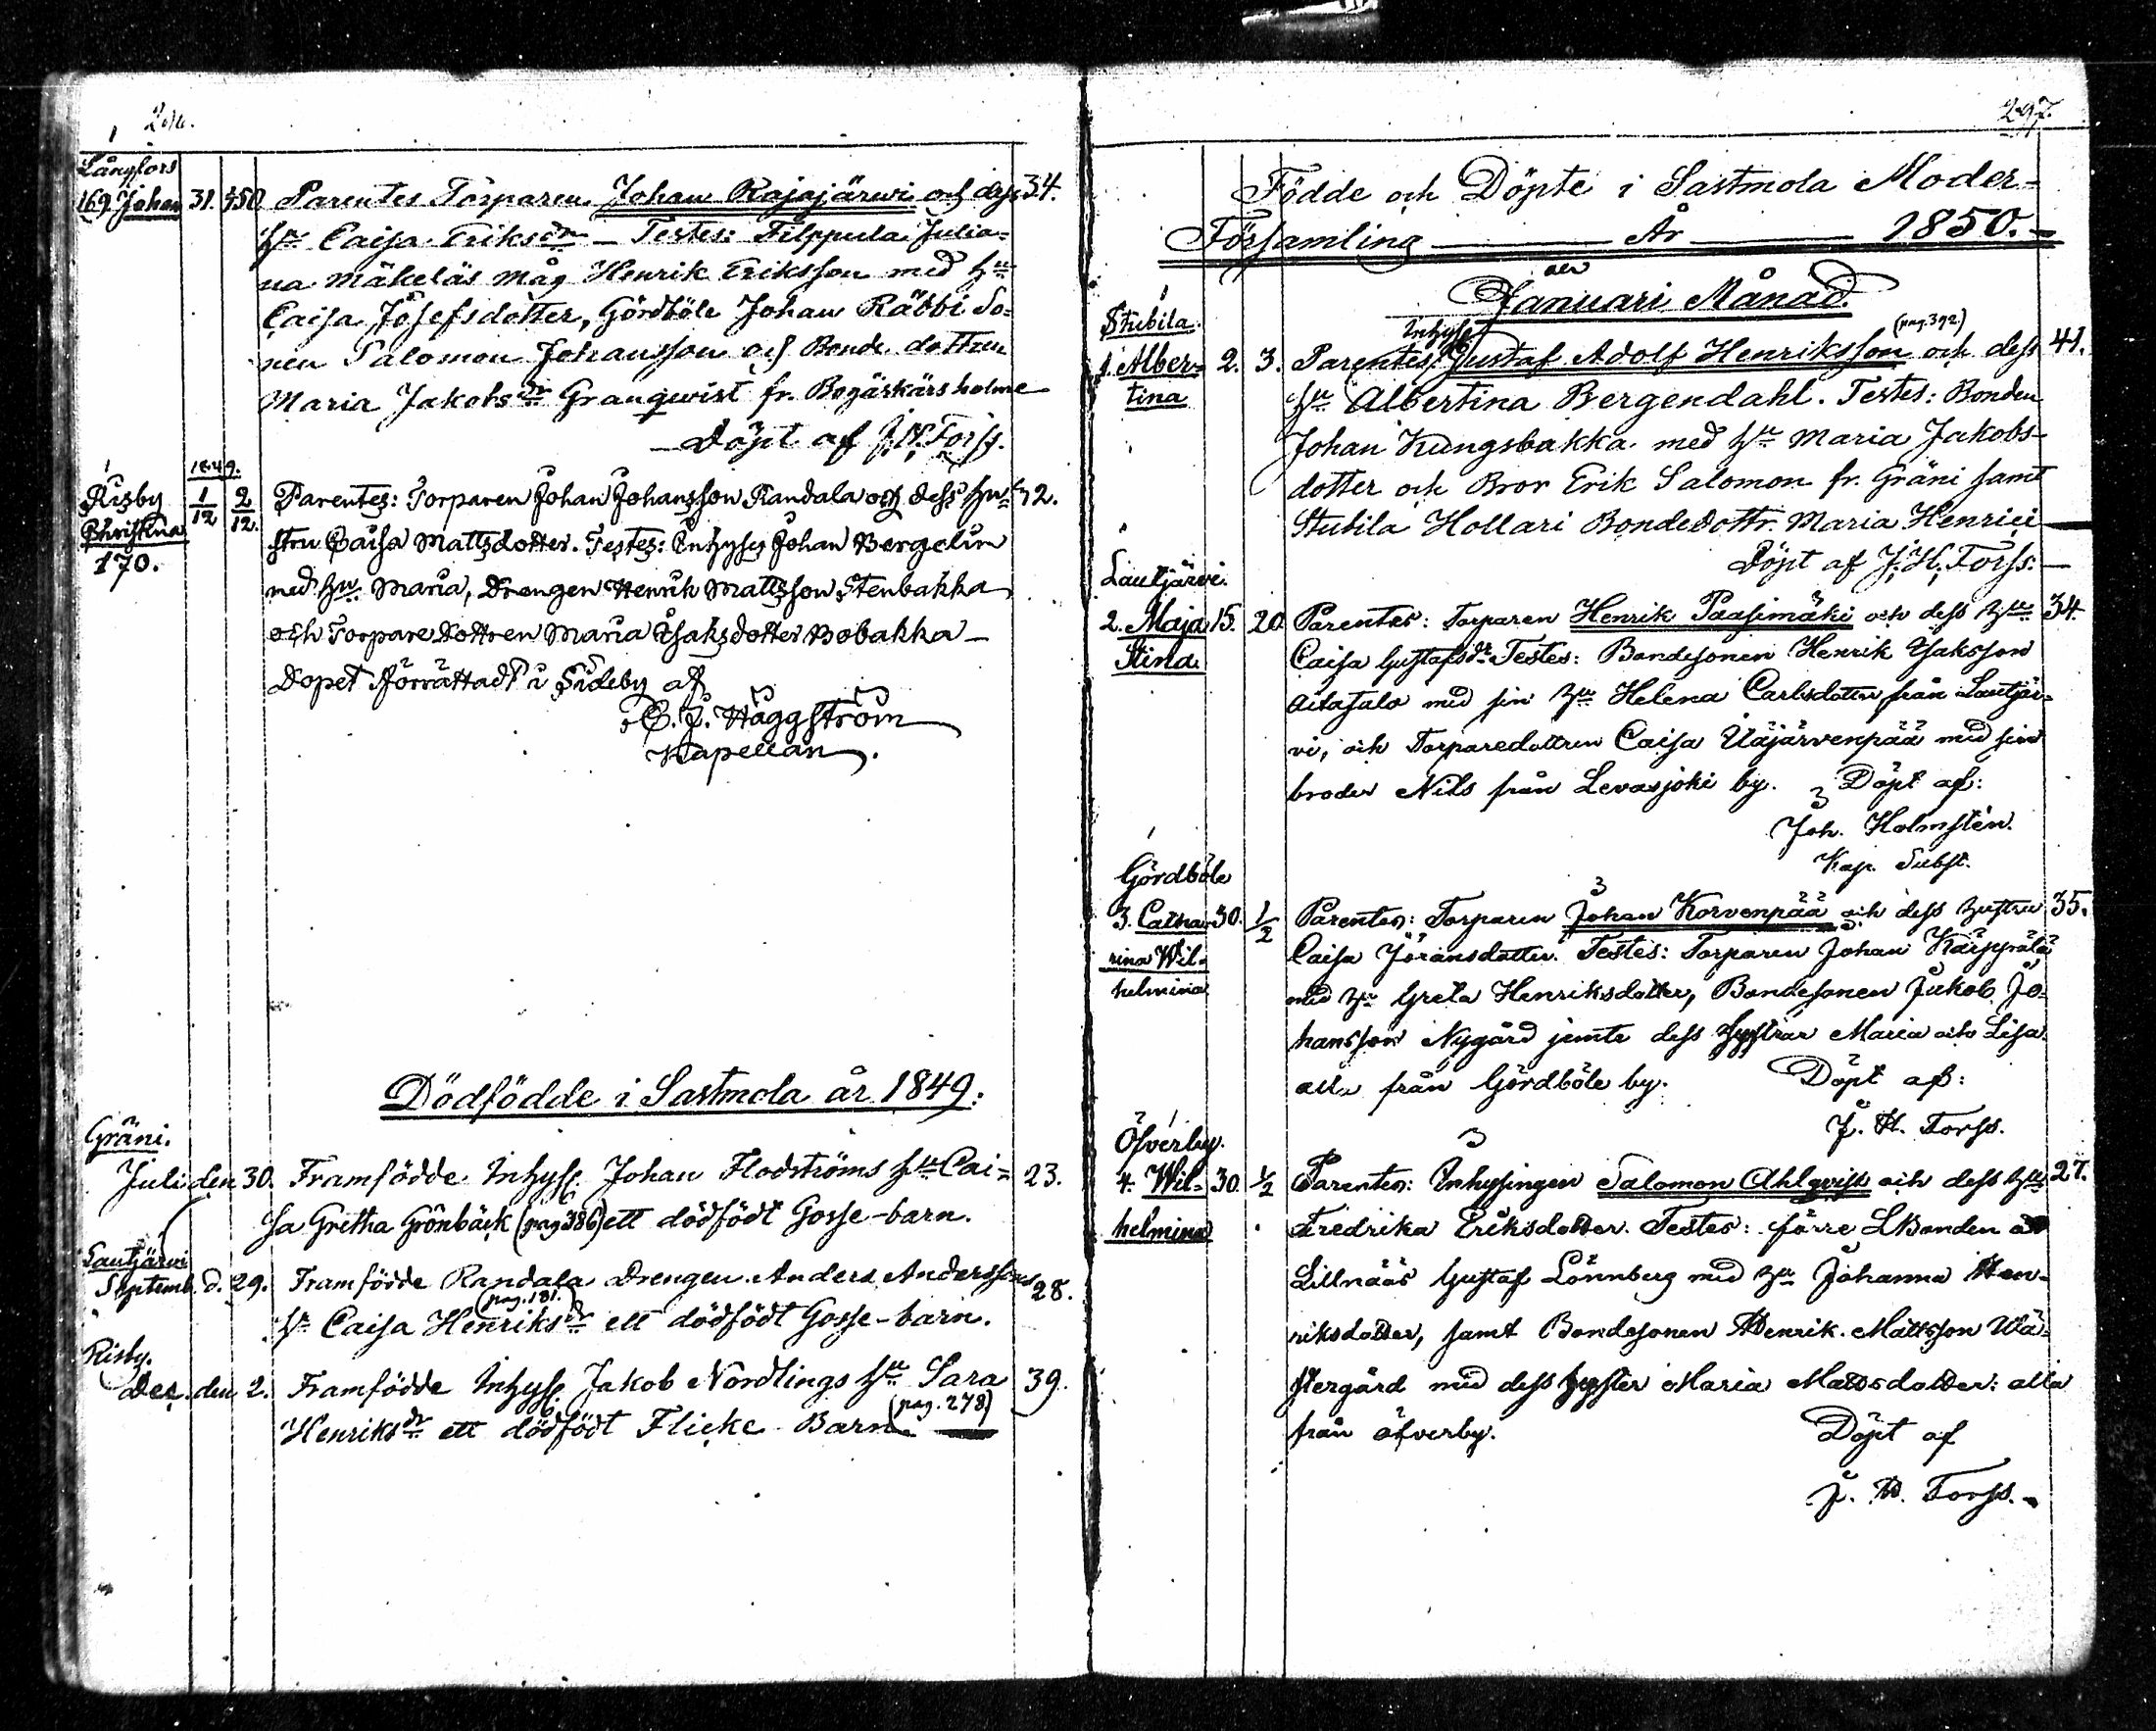 Långfors
169. Johan 31. Parentes Torparen Johan Rajajärwi och dess 34.
hu Caisa Eriksdr — Testes: Filppula Julia=
na Mäkeläs Måg Henrik Eriksson med hu
Caisa Josefsdotter, Gördböle Johan Räbbi So=
nen Salomon Johansson och Bonde dottren
Maria Jakobsdr Granqwist fr.
Döpt af J. H. Forss.
1849.
Risby
Christina
170.
1/12 2/12. Parentes: Torparen Johan Johansson Randala och dess hu=
stru Caisa Mattsdotter. Testes: Inhyses Johan Bergelin
med hu. Maria, Drengen Henrik Mattsson Stenbakka
och Torpare dottren Maria Isaksdotter Bobakka —
Dopet förrättadt i Sideby af
E. J. Häggström
Kapellan.
Dödfödde i Sastmola år 1849.
Gräni.
Juli den 30. Framfödde Inhyss. Johan Flodströms hu Cai= 23.
sa Gretha Grönbäck (pag 386) ett dödfödt Gosse-barn.
Lautjärwi
Septemb. d. 29. Framfödde Randala Drengen Anders Anderssons 28.
(pag. 181.)
hu Caisa Henriksdr ett dödfödt Gosse-barn.
Risby.
Dec. den 2. Framfödde Inhyss. Jakob Nordlings hu Sara 39.
(pag. 278)
Henriksdr ett dödfödt Flicke-Barn.
297.
Födde och Döpte i Sastmola Moder=
Församling — År — 1850. —
Januari Månad.
Stubila
Inhyss (pag. 392.)
1. Alber= 2. 3. Parentes: Gustaf Adolf Henriksson och dess 41.
tina hu Albertina Bergendahl. Testes: Bonden
Johan Kungsbakka med hu Maria Jakobs=
dotter och Bror Erik Salomon fr. Gräni samt
Stubila Hollari Bondedottr. Maria Henrici
Döpt af J. H. Forss. —
Lautjärvi.
2. Maja 15. 20. Parentes: Torparen Henrik Paasimäki och dess hu 34.
Stina. Caisa Gustafsdr Testes: Bondesonen Henrik Isaksson
Aitasalo med sin hu Helena Carlsdotter från Lautjär=
vi, och Torparedottren Caisa Uäjärvenpää med sin
broder Nils från Levasjoki by. Döpt af:
Joh. Holmstén.
Kap. Subst.
Gördböle
3. Catha= 30. 1/2 Parentes: Torparen Johan Korvenpää och dess hustru 35.
rina Wil= Caisa Jöransdotter. Testes: Torparen Johan Kärppälä
helmina med hu Greta Henriksdotter, Bondesonen Jakob Jo=
hansson Nygård jemte dess Systrar Maria och Lisa
alla från Gördböle by. Döpt af:
J. H. Forss.
Öfverby.
4. Wil= 30. 1/2 Parentes: Inhysingen Salomon Ahlqvist och dess hu 27.
helmina Fredrika Eriksdotter. Testes: förre LBonden å
Lillnääs Gustaf Lönnberg med hu Johanna Hen=
riksdotter, samt Bondesonen Henrik Mattsson Wä=
stergård med dess Syster Maria Mattsdotter: alla
från öfverby. Döpt af
J. H. Forss. —